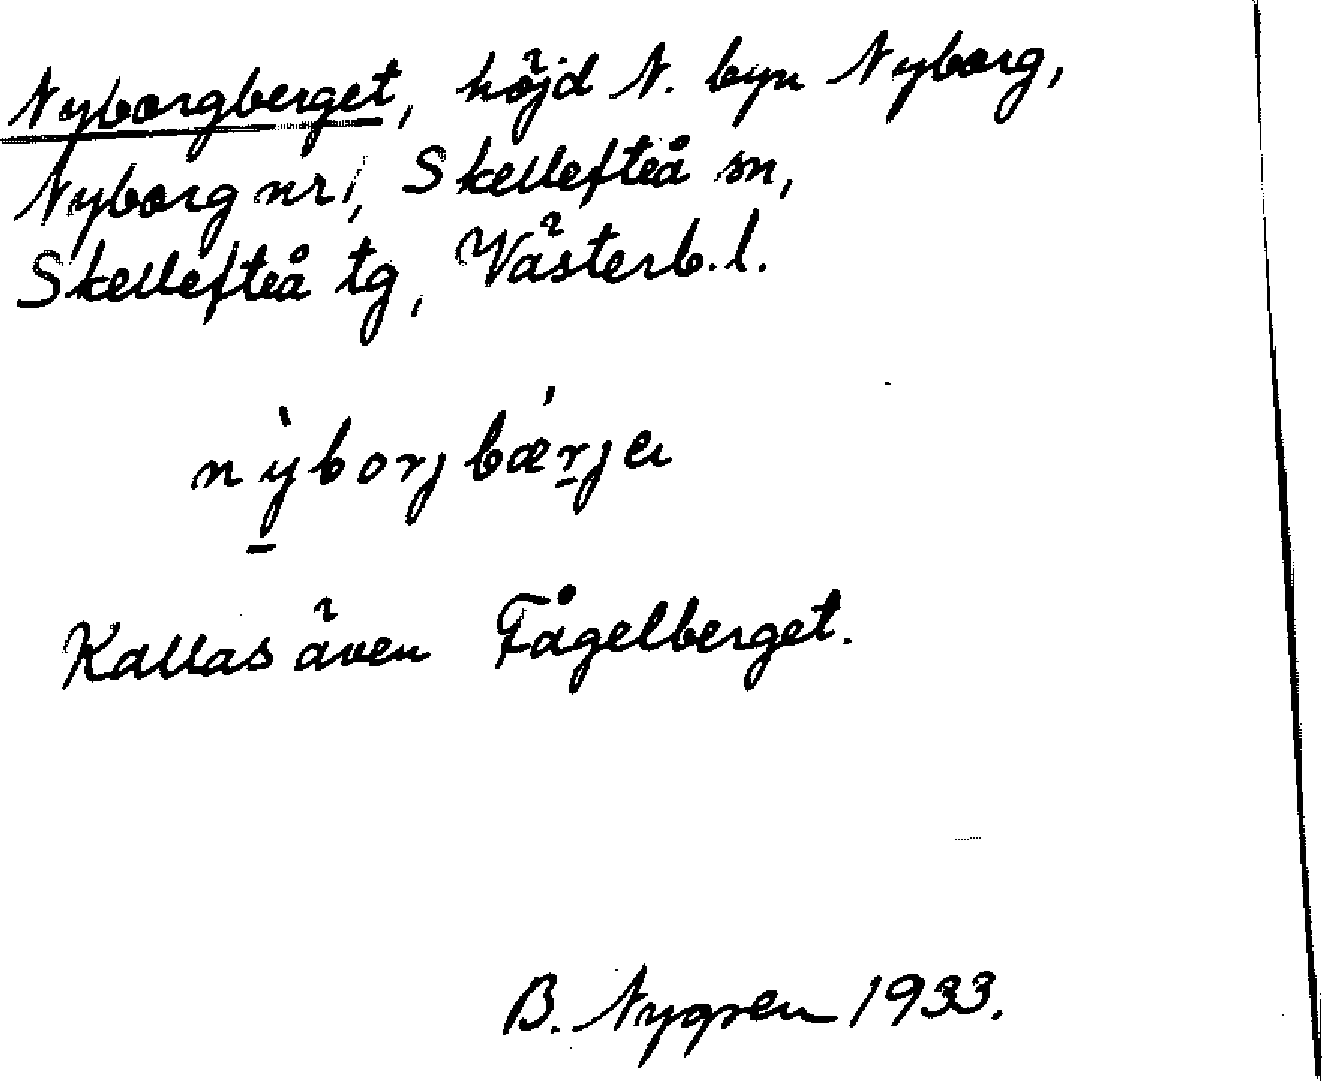 Nyborgberget, höjd N. byn Nyborg,
Nyborg nr 1, Skellefteå sn,
Skellefteå tg, Västerb. l.
nỳborjbǽrja
Kallas även Fågelberget.
B. Nygren 1933.